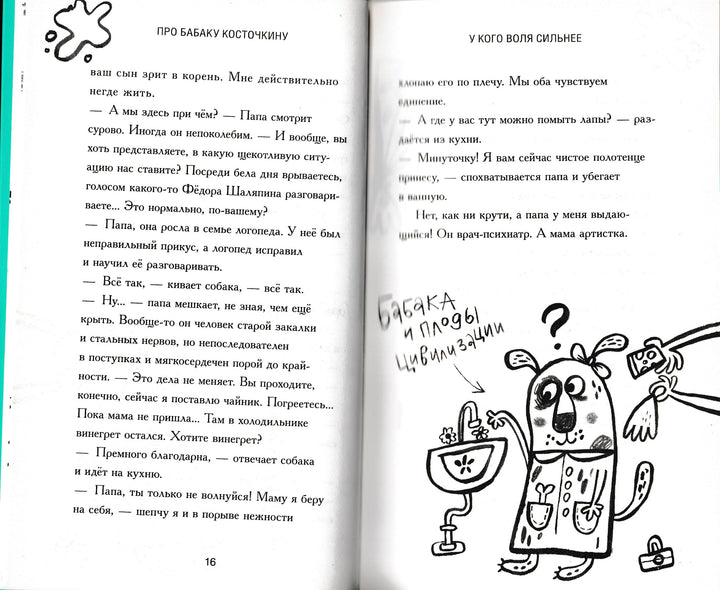 ПРО БАБАКУ КОСТОЧКИНУ
ваш сын зрит в корень. Мне действительно
негде жить.
— А мы здесь при чём? — Папа смотрит
сурово. Иногда он непоколебим. — И вообще, вы
хоть представляете, в какую щекотливую ситу-
ацию нас ставите? Посреди бела дня врываетесь,
голосом какого-то Фёдора Шаляпина разговари-
ваете... Это нормально, по-вашему?
— Папа, она росла в семье логопеда. У неё был
неправильный прикус, а логопед исправил
и научил её разговаривать.
— Всё так, — кивает собака, — всё так.
— Ну... — папа мешкает, не зная, чем ещё
крыть. Вообще-то он человек старой закалки
и стальных нервов, но непоследователен
в поступках и мягкосердечен порой до край-
ности. — Это дела не меняет. Вы проходите,
конечно, сейчас я поставлю чайник. Погреетесь...
Пока мама не пришла... Там в холодильнике
винегрет остался. Хотите винегрет?
— Премного благодарна, — отвечает собака
и идёт на кухню.
— Папа, ты только не волнуйся! Маму я беру
на себя, — шепчу я и в порыве нежности
16
У КОГО ВОЛЯ СИЛЬНЕЕ
хлопаю его по плечу. Мы оба чувствуем
единение.
— А где у вас тут можно помыть лапы? — раз-
даётся из кухни.
— Минуточку! Я вам сейчас чистое полотенце
принесу, — спохватывается папа и убегает
в ванную.
Нет, как ни крути, а папа у меня выдаю-
щийся! Он врач-психиатр. А мама артистка.
Бабака
и плоды
цивилизации
?